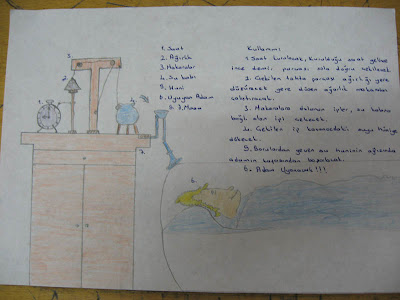 1. Saat
2. Ağırlık
3. Makaralar
4. Su kabı
5. Huni
6. Uyuyan Adam
7. Masa
Kullanımı
1. Saat kurulacak, Kurulduğu saat gelince
ince demir parçası sola doğru çekilecek
2. Çekilen tahta parçası ağırlığı yere
düşürecek yere düşen ağırlık mekanizmayı
çalıştıracak.
3. Makaralara dolanan ipler, su kabına
bağlı olan ipi çekecek.
4. Çekilen ip kavanozdaki suyu Huniye
dökecek.
5. Borulardan geçen su huninin ağzından
adamın kafasından boşalacak.
6. Adam Uyanacak!!!
1.
2.
3.
5.
6.
7.